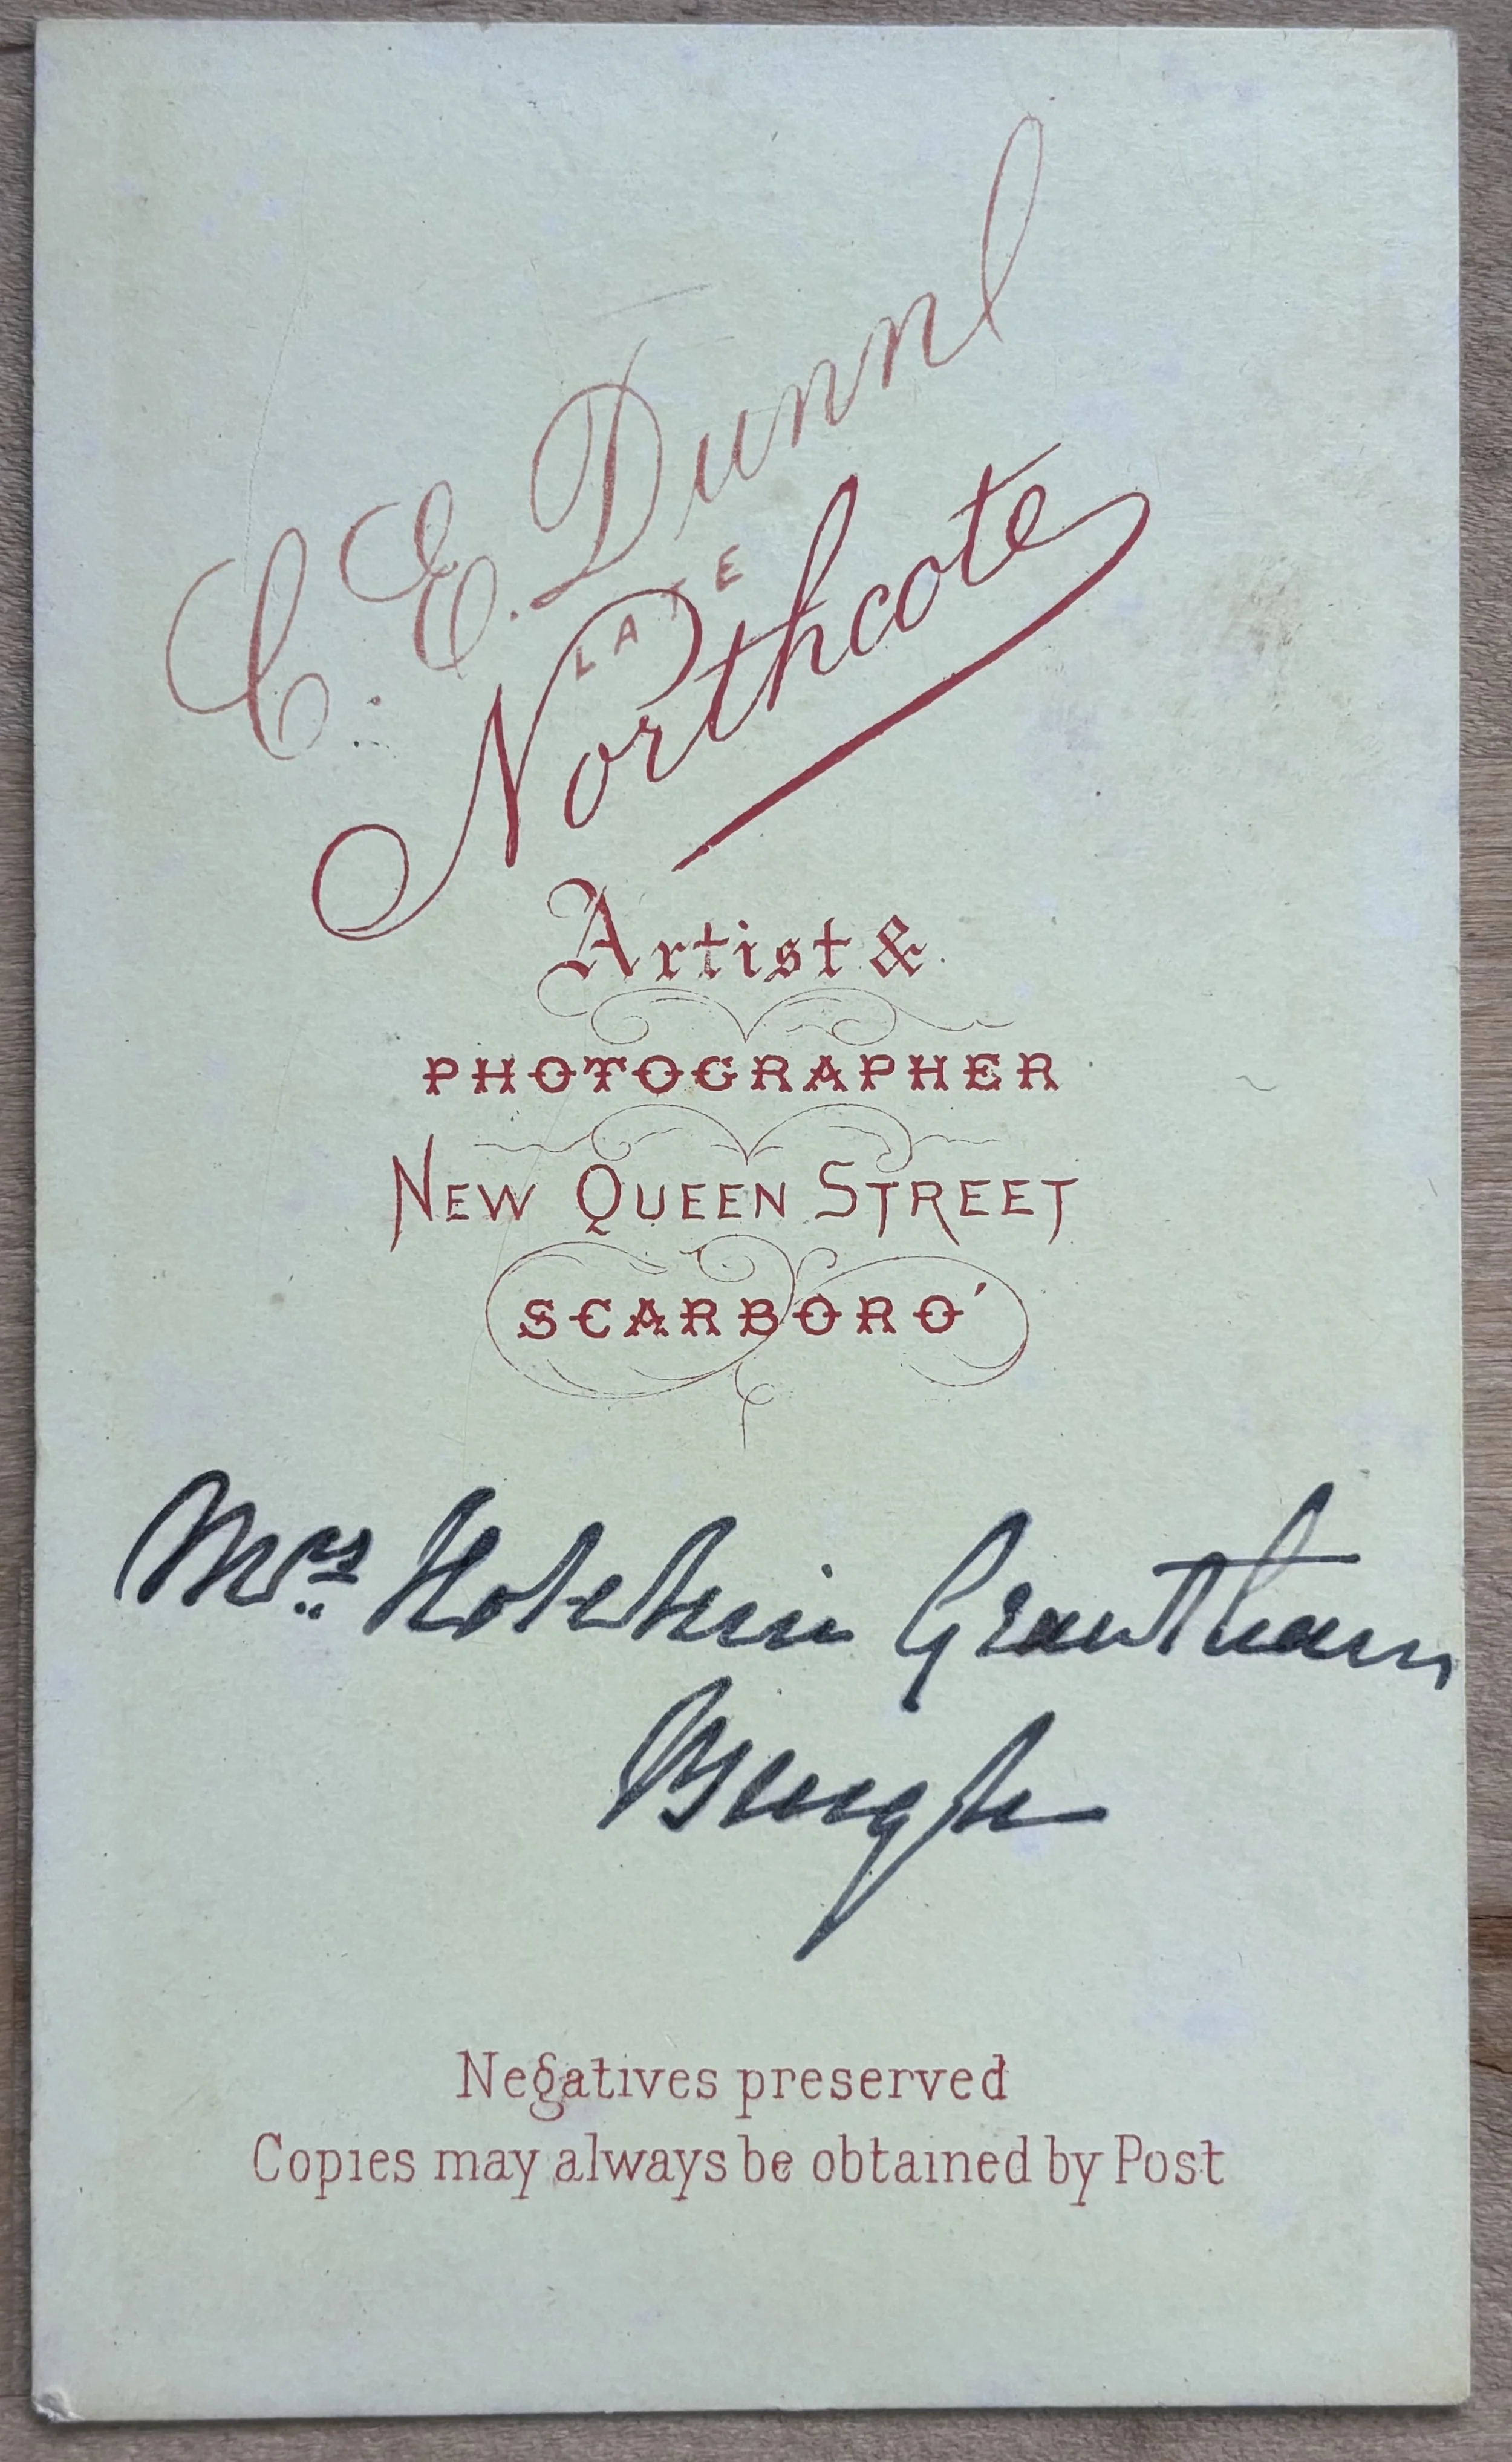 C. E. Dunn
LATE
Northcote
Artist &
PHOTOGRAPHER
NEW QUEEN STREET
SCARBORO'
Mrs Hotchin Grantham
Burgh
Negatives preserved
Copies may always be obtained by Post